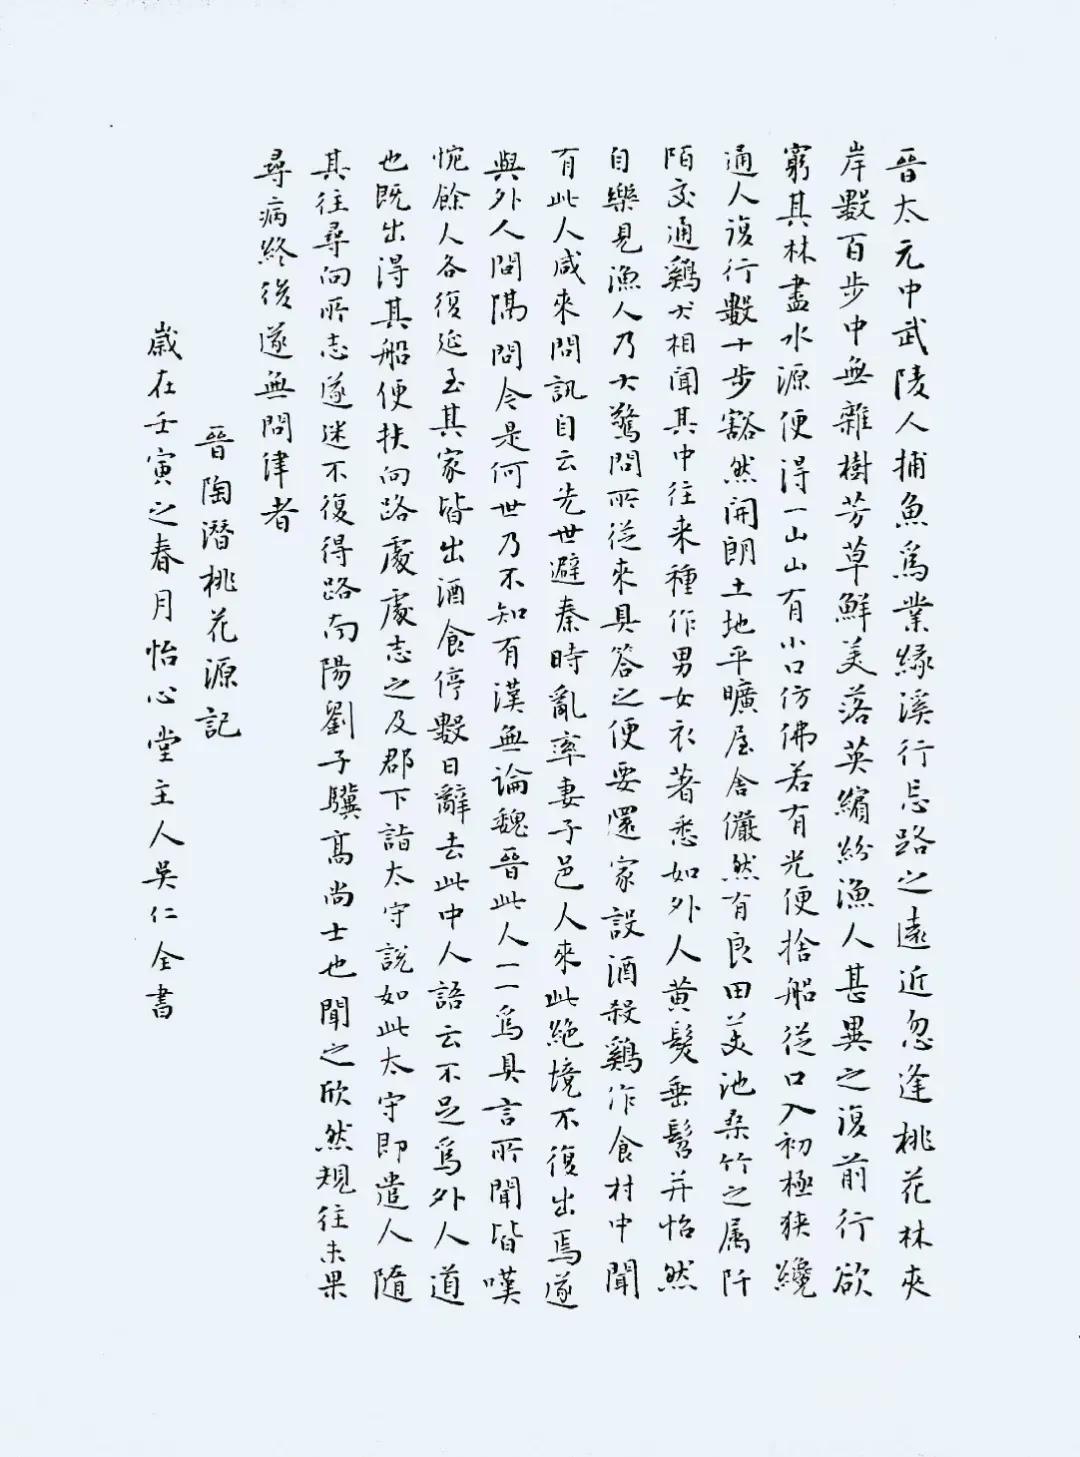 晉太元中武陵人捕魚爲業緣溪行忘路之遠近忽逢桃花林夾
岸數百步中無雜樹芳草鮮美落英繽紛漁人甚異之復前行欲
窮其林林盡水源便得一山山有小口仿佛若有光便捨船從口入初極狹纔
通人復行數十步豁然開朗土地平曠屋舍儼然有良田美池桑竹之属阡
陌交通鷄犬相聞其中往来種作男女衣著悉如外人黄髮垂髫并怡然
自樂見漁人乃大驚問所從來具答之便要還家設酒殺鷄作食村中聞
有此人咸來問訊自云先世避秦時亂率妻子邑人來此絶境不復出焉遂
與外人間隔問今是何世乃不知有漢無論魏晉此人一一爲具言所聞皆嘆
惋餘人各復延至其家皆出酒食停數日辭去此中人語云不足爲外人道
也既出得其船便扶向路處處志之及郡下詣太守説如此太守即遣人隨
其往尋向所志遂迷不復得路南陽劉子驥高尚士也聞之欣然規往未果
尋病終後遂無問津者
晉陶潛桃花源記
歲在壬寅之春月怡心堂主人吳仁全書